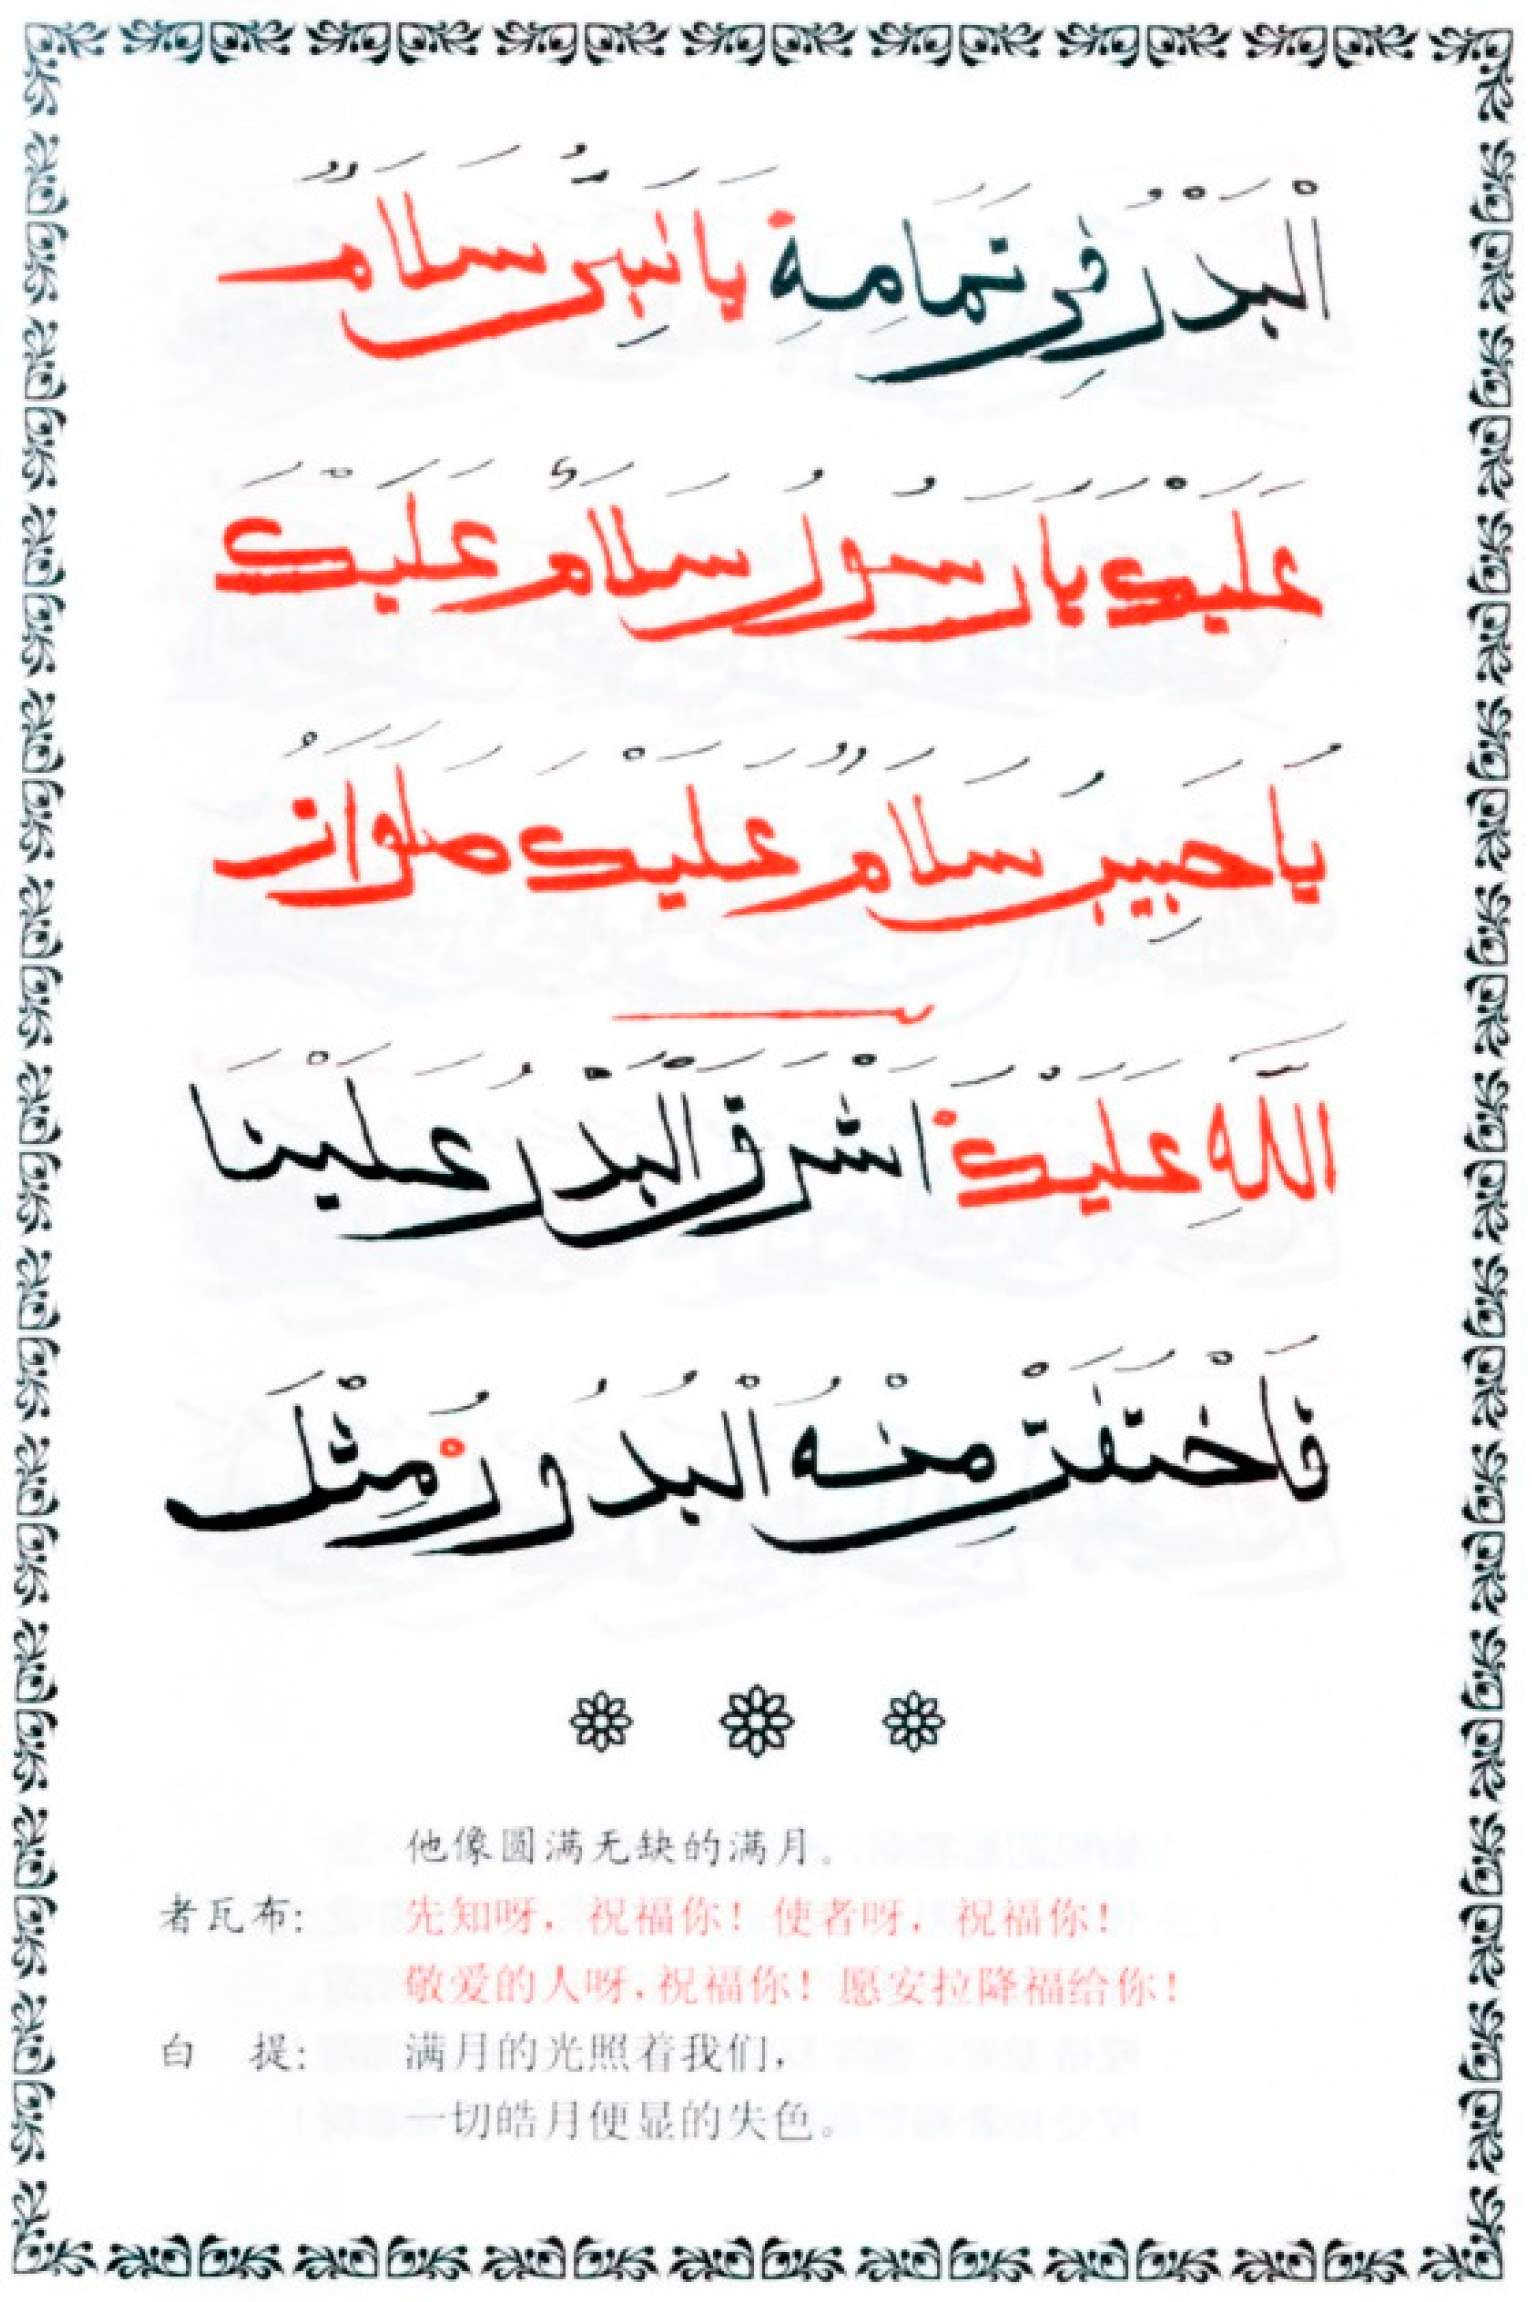 الْبَدْرُ فِي تَمَامِهِ يَا نَبِيُّ سَلَامٌ
عَلَيْكَ يَا رَسُولُ سَلَامٌ عَلَيْكَ
يَا حَبِيبُ سَلَامٌ عَلَيْكَ صَلَوَاتُ
اللَّهِ عَلَيْكَ اَشْرَقَ الْبَدْرُ عَلَيْنَا
فَاخْتَفَتْ مِنْهُ الْبُدُورُ مِثْلَ
他像圆满无缺的满月。
者瓦布: 先知呀，祝福你！使者呀，祝福你！
敬爱的人呀，祝福你！愿安拉降福给你！
白 提: 满月的光照着我们，
一切皓月便显的失色。